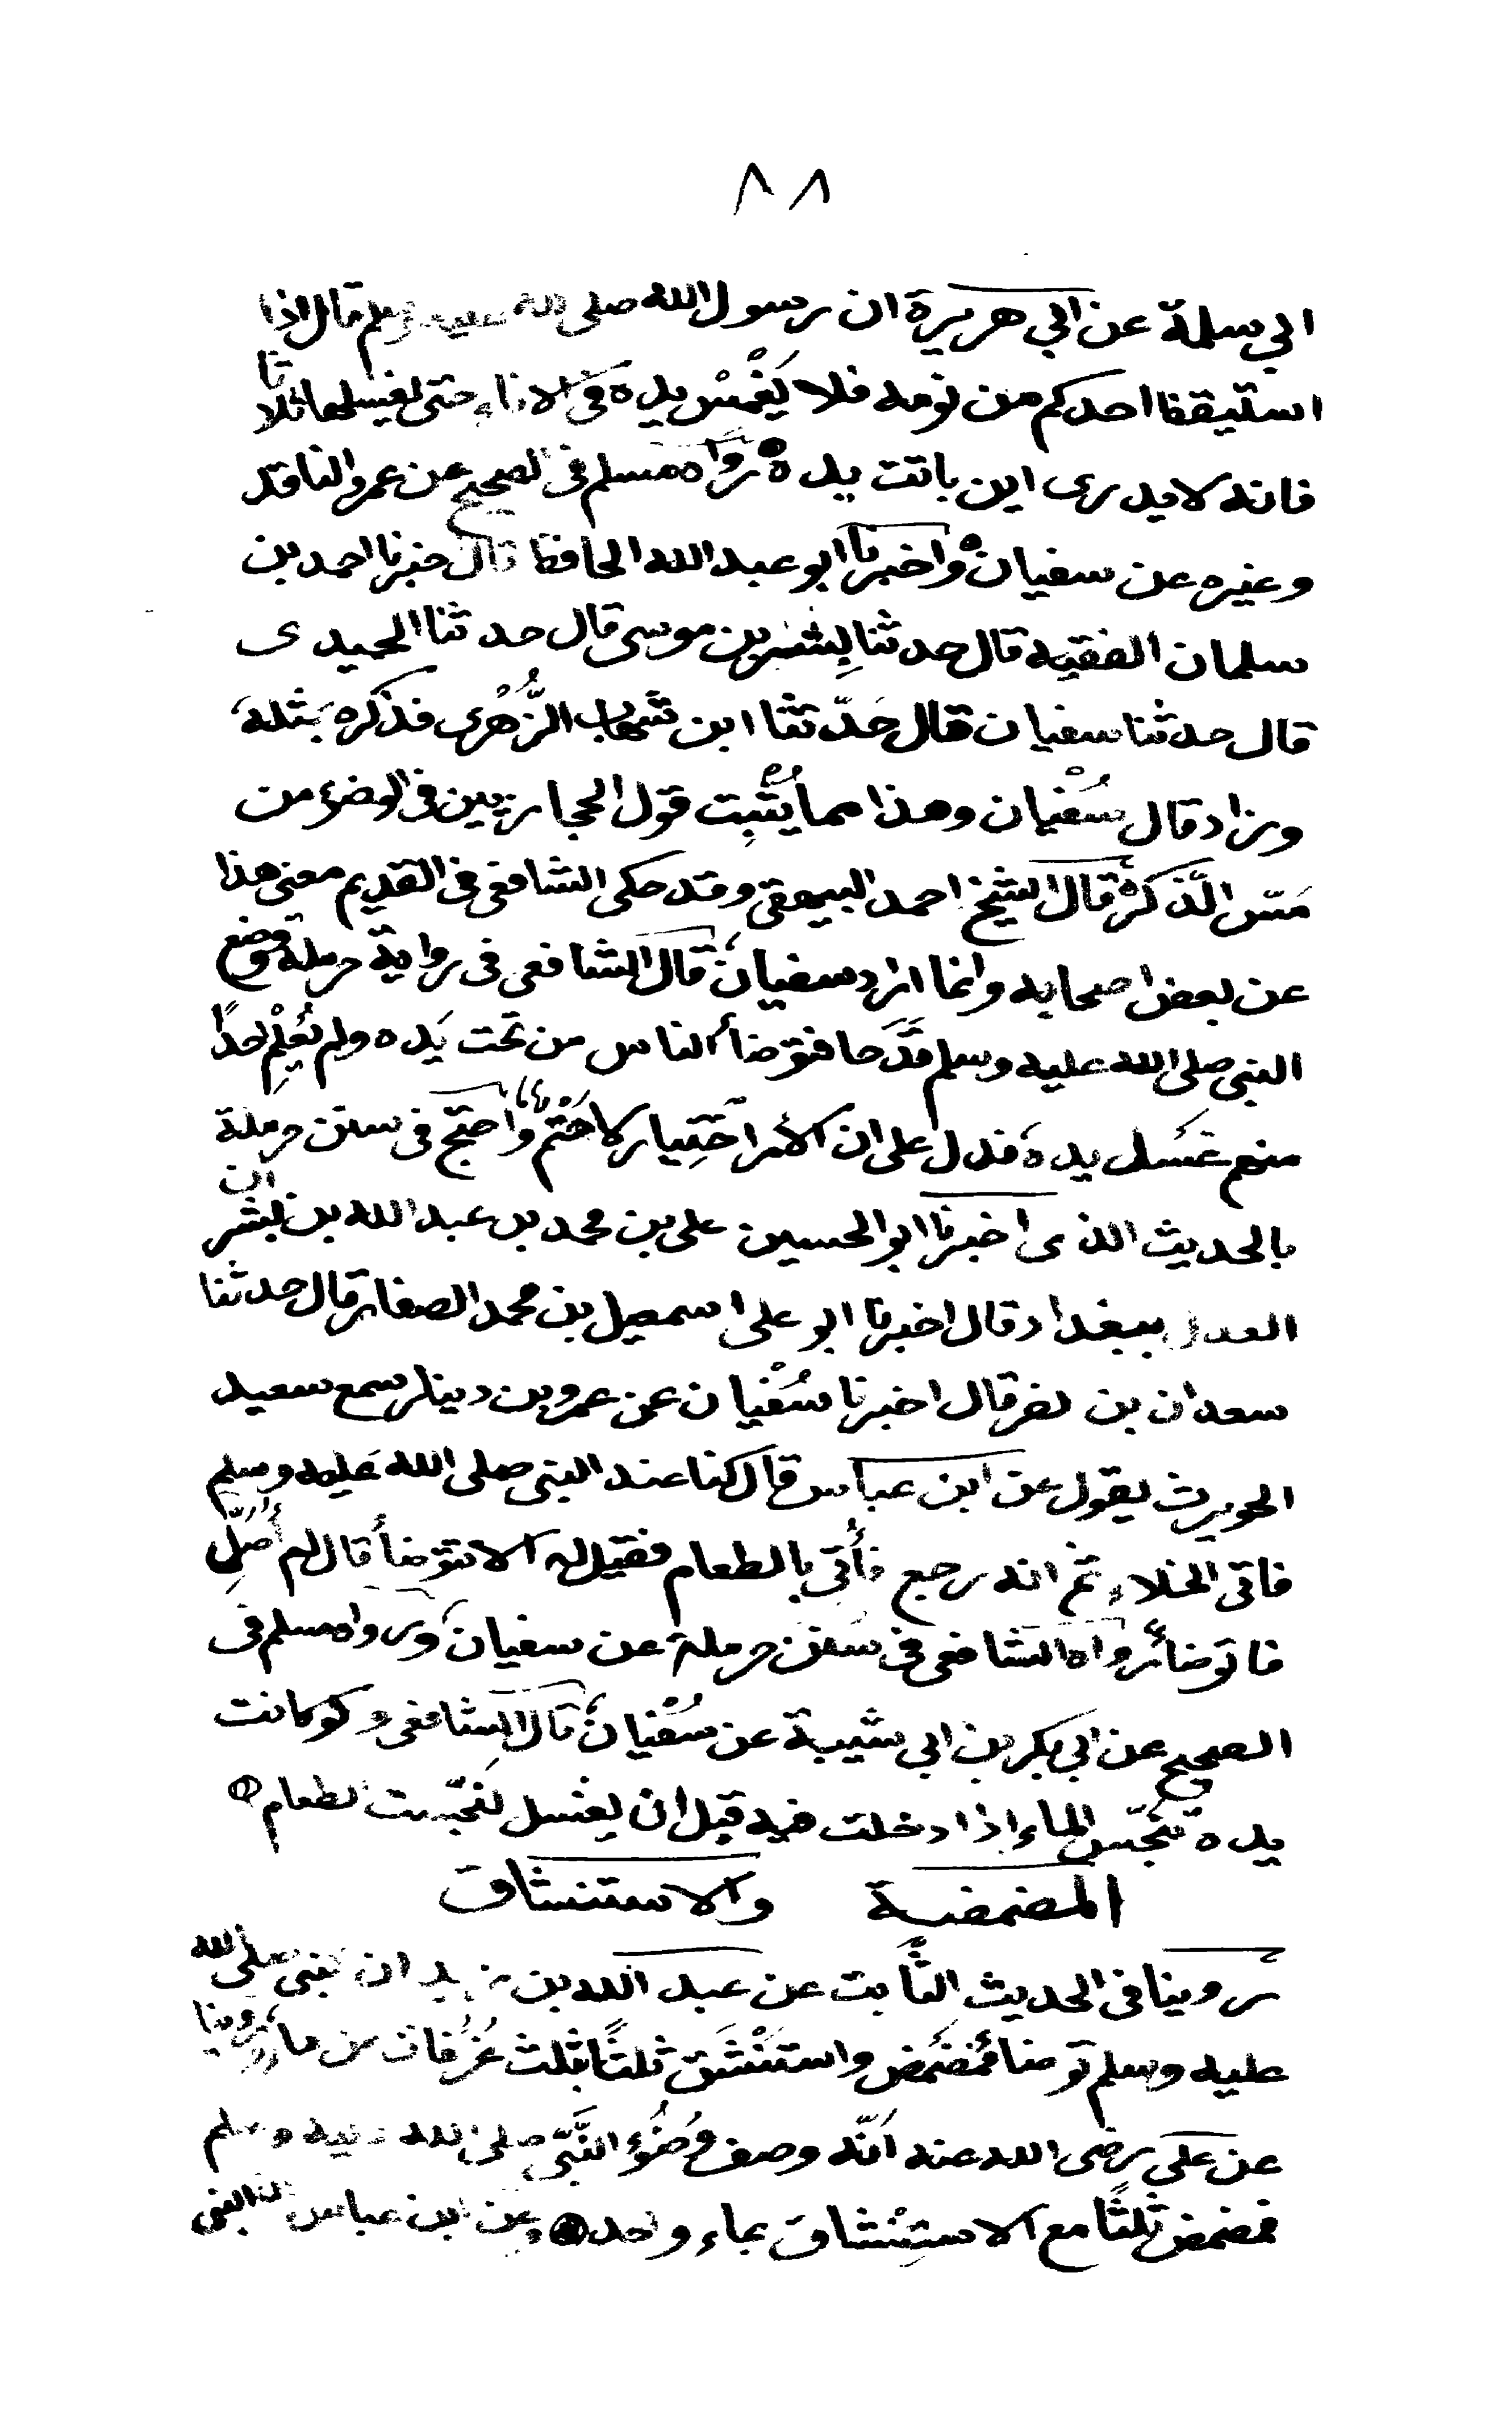 ٨٨
ابي سلمة عن ابي هريرة ان رسول الله صلى الله عليه وسلم قال اذا
استيقظ احدكم من نومه فلا يَغْمِسْ يده في الاناء حتى يغسلها ثلاثا
فانه لا يدرى اين باتت يده رواه مسلم في الصحيح عن عمرو الناقد
وغيره عن سفيان واخبرنا ابو عبد الله الحافظ قال اخبرنا احمد بن
سلمان الفقيه قال حدثنا بِشر بن موسى قال حدثنا الحميدى
قال حدثنا سفيان قال حَدّثنا ابن شهاب الزُّهْرى فذكره بمثله
وزاد قال سُفْيان وهذا مما يُثْبِت قول الحجازيين في الوضوء من
مَسّ الذَّكر قال الشيخ احمد البيهقى وقد حكى الشافعى في القديم معنى هذا
عن بعض اصحابه وانما اراد سفيان قال الشافعى في رواية حرملة وضع
النبى صلى الله عليه وسلم قَدَحا فتوضأ الناس من تحت يَده ولم نُعْلِم احدًا
منهم غسَل يده فدل على ان الامر اختِيار لا حَتْم واحتج في سنن حرملة
بالحديث الذى اخبرنا ابو الحسين على بن محمد بن عبد الله بن بشران
العدل ببغداد قال اخبرنا ابو على اسمعيل بن محمد الصفار قال حدثنا
سعدان بن نصر قال اخبرنا سُفْيان عن عمرو بن دينار سمع سعيد
الحويرث يقول عن ابن عباس قال كنا عند النبى صلى الله عليه وسلم
فاتى الخلاء ثم انه رجع فأُتى بالطعام فقيل له الا تتوضأ قال لم أُصَلِّ
فاتوضأ رواه الشافعى في سُنن حرملة عن سفيان ورواه مسلم في
الصحيح عن ابي بكر بن ابي شيبة عن سُفْيان قال الشافعى ولو كانت
يده تنَجّس الماء اذا دخلت فيه قبل ان يغسل لنَجّست الطعام
المضمضة والاستنشاق
روينا في الحديث الثَّابت عن عبد الله بن زيد ان النبى صلى الله
عليه وسلم توضأ فمَضْمَض واستَنْشَق ثلثًا بثلث غُرُفات من ماء وروينا
عن على رضى الله عنه أنّه وصف وُضُوء النَّبِّى صلى الله عليه وسلم
فمضمض ثلثًا مع الاستِنْشاق بماء واحد وعن ابن عباس ان النبى